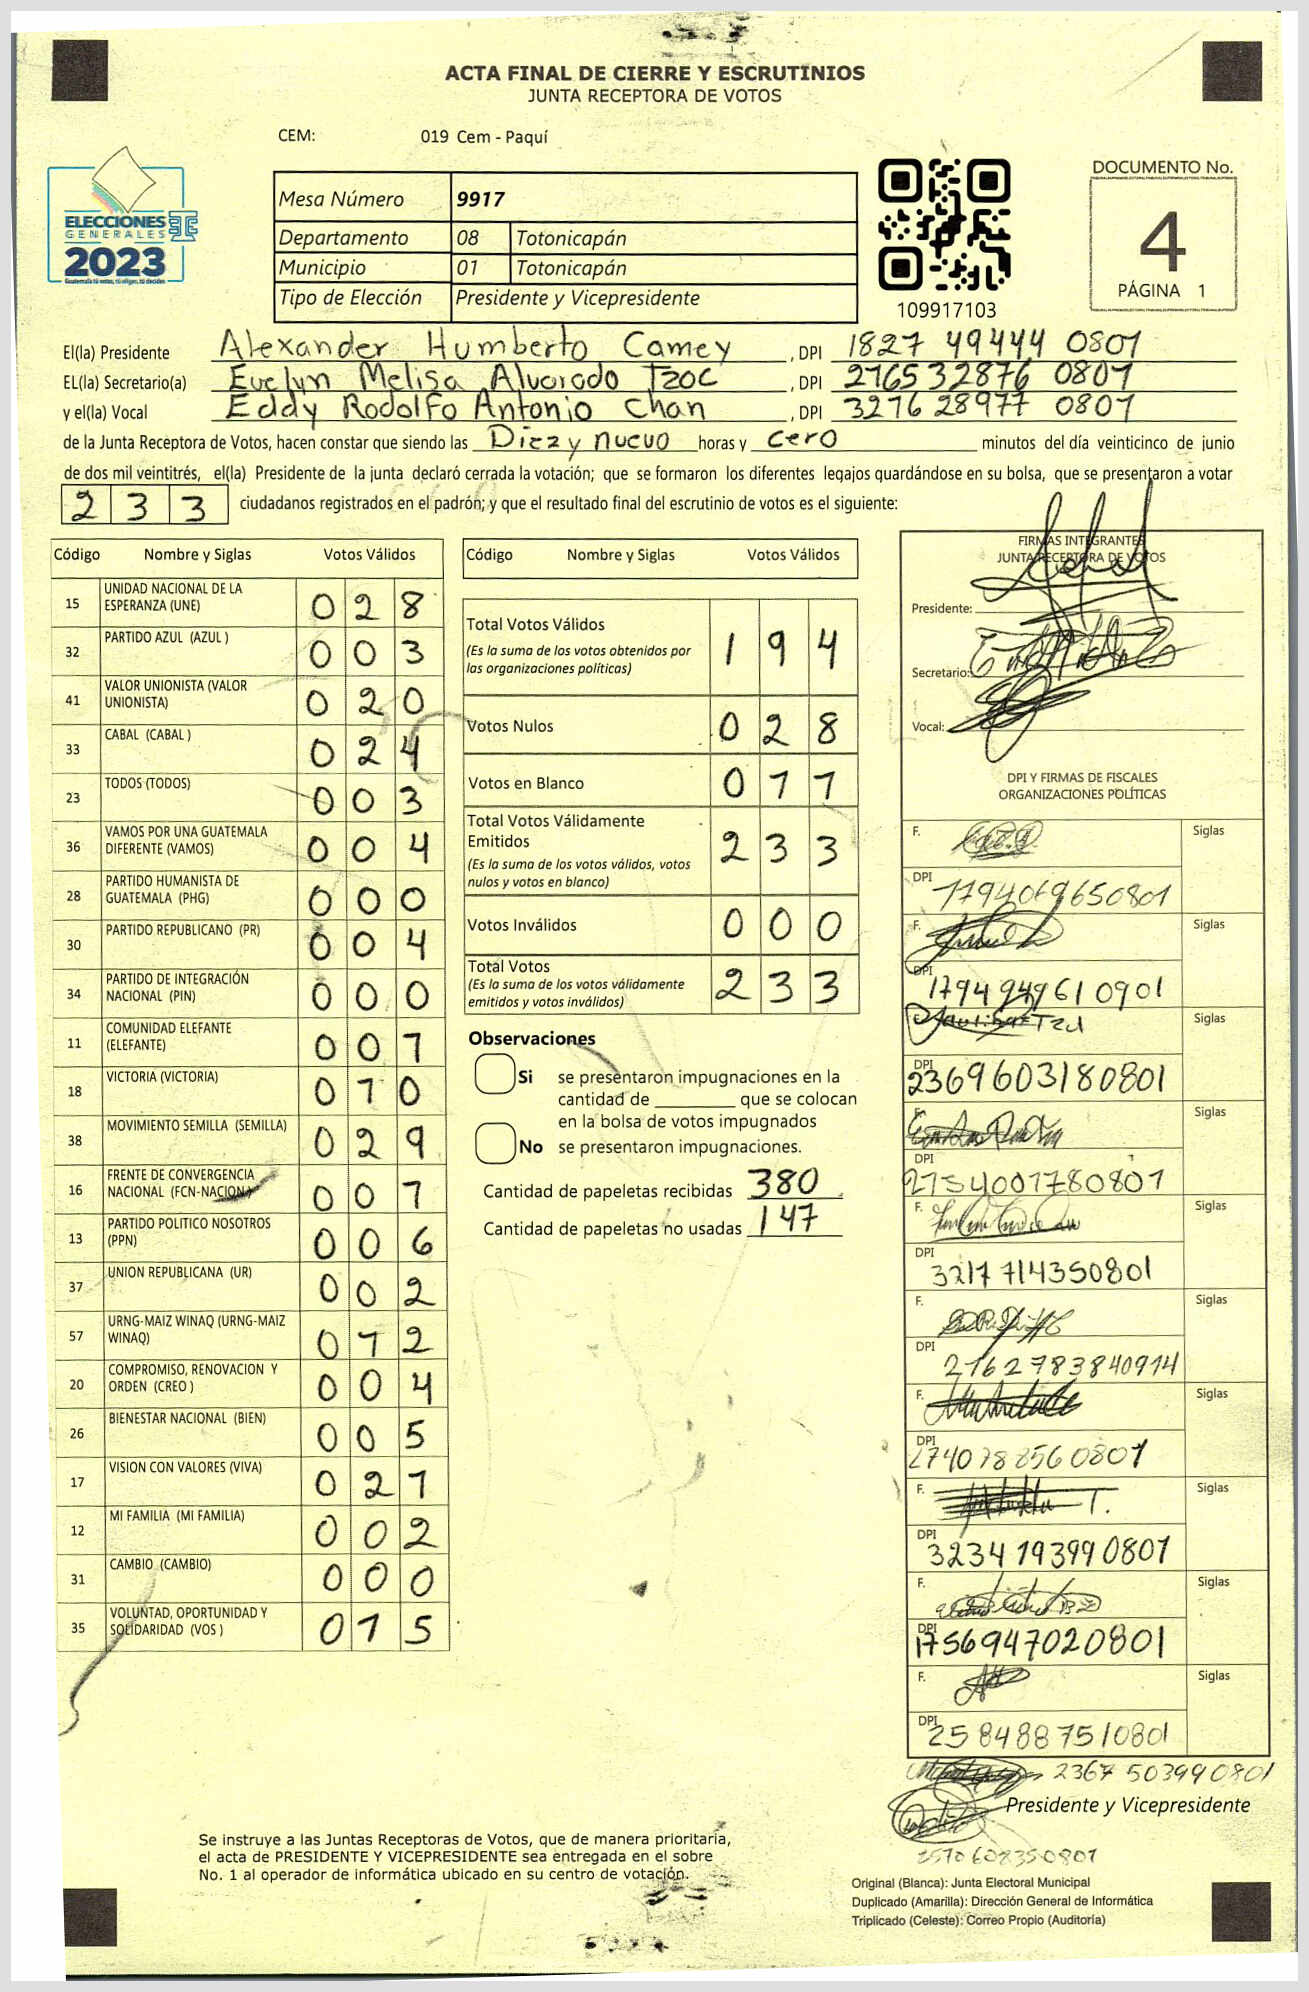 ACTA FINAL DE CIERRE Y ESCRUTINIOS
JUNTA RECEPTORA DE VOTOS
CEM: 019 Cem - Paquí
ELECCIONES
GENERALES
2023
Guatemala tú votas, tú eliges, tú decides
Mesa Número 9917
Departamento 08 Totonicapán
Municipio 01 Totonicapán
Tipo de Elección Presidente y Vicepresidente
109917103
DOCUMENTO No.
4
PÁGINA 1
El(la) Presidente Alexander Humberto Camey , DPI 1827 49444 0801
EL(la) Secretario(a) Evelyn Melisa Alvarado Tzoc , DPI 2765 32876 0801
y el(la) Vocal Eddy Rodolfo Antonio Chan , DPI 3276 28977 0801
de la Junta Receptora de Votos, hacen constar que siendo las Diez y nueuo horas y cero minutos del día veinticinco de junio
de dos mil veintitrés, el(la) Presidente de la junta declaró cerrada la votación; que se formaron los diferentes legajos guardándose en su bolsa, que se presentaron a votar
233 ciudadanos registrados en el padrón; y que el resultado final del escrutinio de votos es el siguiente:
Código Nombre y Siglas Votos Válidos
15 UNIDAD NACIONAL DE LA ESPERANZA (UNE) 028
32 PARTIDO AZUL (AZUL ) 003
41 VALOR UNIONISTA (VALOR UNIONISTA) 020
33 CABAL (CABAL ) 024
23 TODOS (TODOS) 003
36 VAMOS POR UNA GUATEMALA DIFERENTE (VAMOS) 004
28 PARTIDO HUMANISTA DE GUATEMALA (PHG) 000
30 PARTIDO REPUBLICANO (PR) 004
34 PARTIDO DE INTEGRACIÓN NACIONAL (PIN) 000
11 COMUNIDAD ELEFANTE (ELEFANTE) 007
18 VICTORIA (VICTORIA) 010
38 MOVIMIENTO SEMILLA (SEMILLA) 029
16 FRENTE DE CONVERGENCIA NACIONAL (FCN-NACION) 007
13 PARTIDO POLITICO NOSOTROS (PPN) 006
37 UNION REPUBLICANA (UR) 002
57 URNG-MAIZ WINAQ (URNG-MAIZ WINAQ) 012
20 COMPROMISO, RENOVACION Y ORDEN (CREO ) 004
26 BIENESTAR NACIONAL (BIEN) 005
17 VISION CON VALORES (VIVA) 021
12 MI FAMILIA (MI FAMILIA) 002
31 CAMBIO (CAMBIO) 000
35 VOLUNTAD, OPORTUNIDAD Y SOLIDARIDAD (VOS ) 015
Código Nombre y Siglas Votos Válidos
Total Votos Válidos 194
(Es la suma de los votos obtenidos por
las organizaciones políticas)
Votos Nulos 028
Votos en Blanco 011
Total Votos Válidamente
Emitidos 233
(Es la suma de los votos válidos, votos
nulos y votos en blanco)
Votos Inválidos 000
Total Votos 233
(Es la suma de los votos válidamente
emitidos y votos inválidos)
Observaciones
Si se presentaron impugnaciones en la
cantidad de ________ que se colocan
en la bolsa de votos impugnados
No se presentaron impugnaciones.
Cantidad de papeletas recibidas 380
Cantidad de papeletas no usadas 147
FIRMAS INTEGRANTES
JUNTA RECEPTORA DE VOTOS
Presidente:
Secretario:
Vocal:
DPI Y FIRMAS DE FISCALES
ORGANIZACIONES POLÍTICAS
F. Siglas
DPI 1794069650801
F. Siglas
DPI 1794949610901
F. Siglas
DPI 2369603180801
F. Siglas
DPI 2754001780801
F. Siglas
DPI 3217714350801
F. Siglas
DPI 2162783840914
F. Siglas
DPI
F. Siglas
DPI 3234193990801
F. Siglas
DPI 1756947020801
F. Siglas
DPI 2584887510801
2367 503990801
Presidente y Vicepresidente
Se instruye a las Juntas Receptoras de Votos, que de manera prioritaria,
el acta de PRESIDENTE Y VICEPRESIDENTE sea entregada en el sobre
No. 1 al operador de informática ubicado en su centro de votación.
Original (Blanca): Junta Electoral Municipal
Duplicado (Amarilla): Dirección General de Informática
Triplicado (Celeste): Correo Propio (Auditoría)